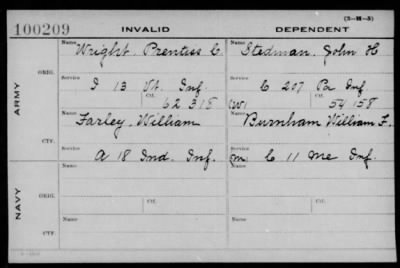 (3-M-5)
100209 INVALID DEPENDENT
Name Wright, Prentiss C Name Stedman, John H
ARMY
ORIG.
Service I 13 Vt. Inf. Service C 207 Pa Inf
Ctf. 62 318 (W) Ctf. 54 158
Name Farley, William Name Burnham William F.
CTF.
A 18 Ind. Inf. M C 11 Me Inf.
NAVY
ORIG.
Name Name
Service Ctf. Service Ctf.
CTF.
Name Name